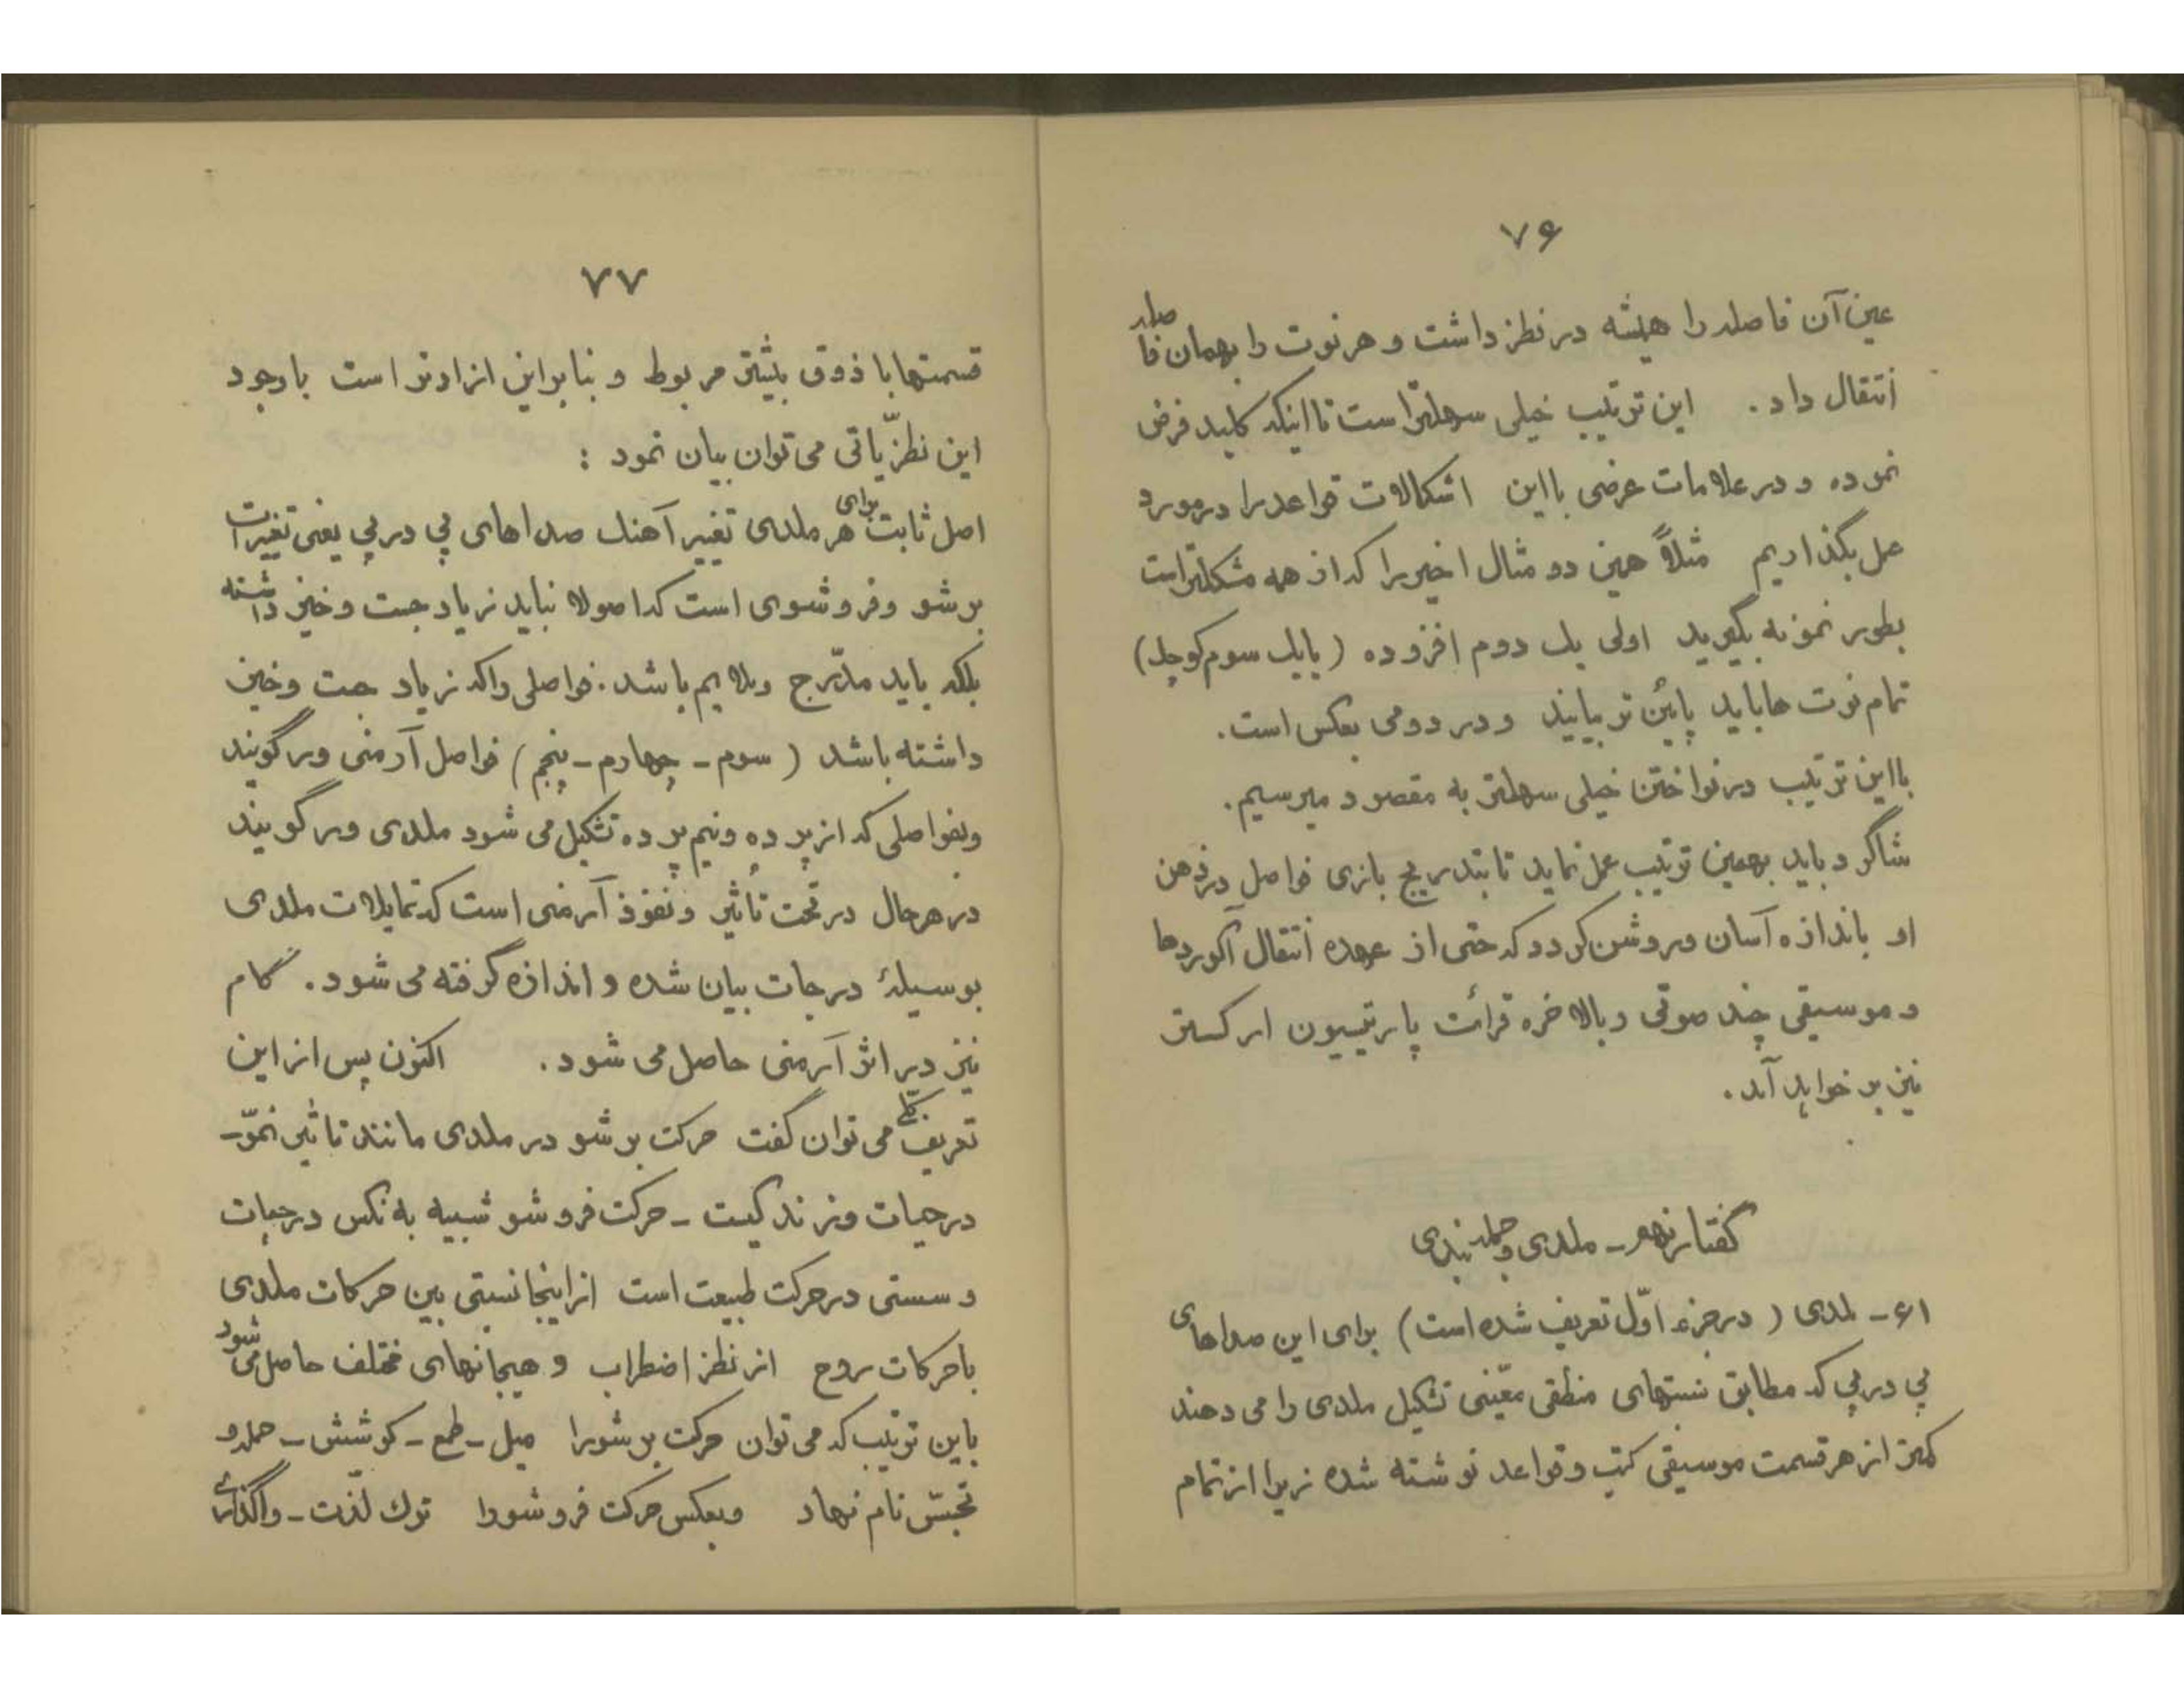 ۷۶
عین آن فاصله را همیشه در نظر داشت و هر نوت را بهمان فاصله
انتقال داد. این ترتیب خیلی سهلتر است تا اینکه کلید فرض
نموده و در علامات عرضی بااین اشکالات قواعد را در مورد
عمل بگذاریم مثلاً همین دو مثال اخیر را که از همه مشکلتر است
بطور نمونه بگیرید اولی یک دوم افزوده (یا یک سوم کوچک)
تمام نوت ها باید پائین تر بیایند و در دومی بعکس است.
بااین ترتیب در نواختن خیلی سهلتر به مقصود میرسیم.
شاگرد باید بهمین ترتیب عمل نماید تا بتدریج بازی فواصل در ذهن
او باندازه آسان و روشن گردد که حتی از عهده انتقال آکوردها
و موسیقی چند صوتی و بالاخره قرائت پارتیسیون ارکستر
نیز بر خواهد آمد.
گفتار نهم - ملدی و جمله بندی
۶۱- ملدی (در جزء اوّل تعریف شده است) برای این صداهای
پی در پی که مطابق نسبتهای منطقی معّینی تشکیل ملدی را می دهند
کمتر از هر قسمت موسیقی کتب و قواعد نوشته شده زیرا از تمام
۷۷
قسمتها با ذوق بیشتر مربوط و بنابراین ازادتر است باوجود
این نظرّیاتی می توان بیان نمود :
اصل ثابت برای هر ملدی تغییر آهنک صداهای پی در پی یعنی تغییرات
برشو و فروشوی است که اصولا نباید زیاد جست وخیز داشته
بلکه باید مدّرج و ملایم باشد. فواصلی را که زیاد جست وخیز
داشته باشد (سوم - چهارم - پنجم) فواصل آرمنی ور گویند
وبفواصلی که از پرده ونیم پرده تشکیل می شود ملدی ور گویند
در هر حال در تحت تأثیر و نفوذ آرمنی است که تمایلات ملدی
بوسیلهٔ درجات بیان شده و اندازه گرفته می شود. گام
نیز در اثر آرمنی حاصل می شود. اکنون پس از این
تعریف کلی می توان گفت حرکت برشو در ملدی مانند تاثیر نموّ-
در حیات و زندگیست - حرکت فروشو شبیه به نکس در حیات
و سستی در حرکت طبیعت است از اینجا نسبتی بین حرکات ملدی
با حرکات روح از نظر اضطراب و هیجانهای مختلف حاصل می شود
باین ترتیب که می توان حرکت برشو را میل - طمع - کوشش - حمله و
تجسّس نام نهاد وبعکس حرکت فروشو را ترک لذّت - واگذاری